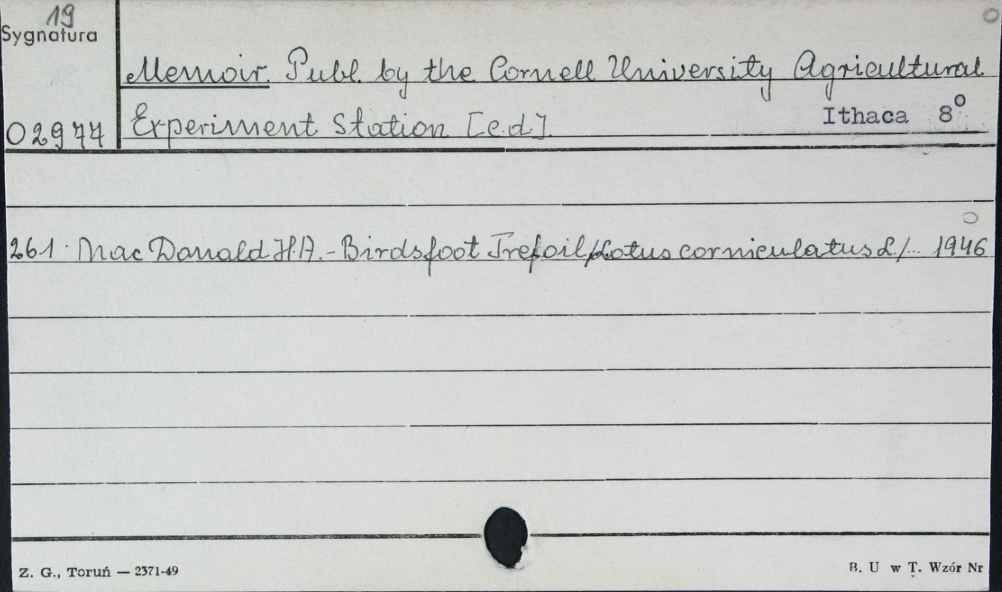 19
Sygnatura
Memoir. Publ. by the Cornell University Agricultural
02977 Experiment Station [c.d]. Ithaca 8°
261. Mac Donald H.A. - Birdsfoot Trefoil /Lotus corniculatus L/... 1946
Z. G., Toruń — 2371-49
B. U w T. Wzór Nr